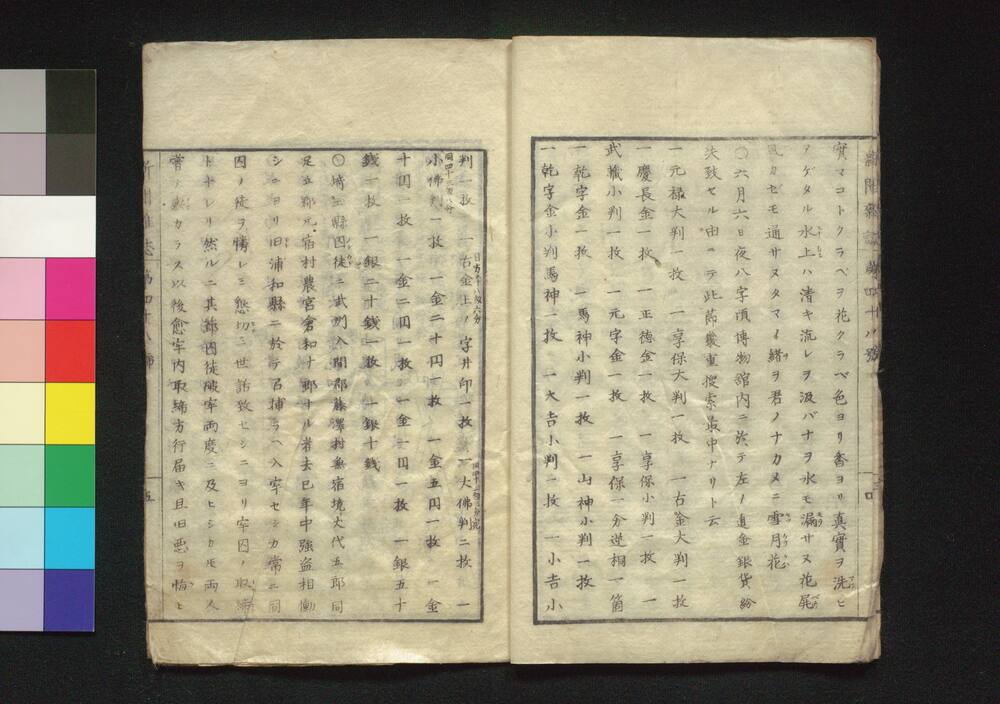 新聞雜誌 第四十八號 四
實マコトクラベヲ花クラベ色ヨリ香ヨリ真實ヲ洗ヒ
アゲタル水上ハ清キ流レヲ汲バナヲ水モ漏サヌ花尾
風カゼモ通サヌタマノ緒ヲ君ノナカメニ雪月花
〇六月六日夜八字頃博物館内ニ於テ左ノ通金銀貨紛
失致セル由ニテ此節嚴重搜索最中ナリト云
一元禄大判一枚 一享保大判一枚 一古金大判一枚
一慶長金一枚 一正徳金一枚 一享保小判一枚 一
武藏小判一枚 一元字金一枚 一享保一分逆桐一箇
一乾字金一枚 一馬神小判一枚 一山神小判一枚
一乾字金小判馬神一枚 一大吉小判一枚 一小吉小
判一枚 一古金上ノ字井印一枚 一大佛判二枚 一
小佛判一枚 一金二十円一枚 一金五円一枚 一金
十円一枚 一金二円一枚 一金一円一枚 一銀五十
錢一枚 一銀二十錢一枚 一銀十錢
〇埼玉縣囚徒ニ武州入間郡藤澤村無宿境大代五郎同
足立郡元宿村農宮倉和十郎ナル者去巳年中強盗相働
シニヨリ旧浦和縣ニ於テ召捕ラヘ入牢セシカ常ニ同
囚ノ徒ヲ憐レミ懇切ニ世話致セシニヨリ牢囚ノ取締
トナレリ然ルニ其節囚徒破牢両度ニ及ヒシカ圧両人
カラス以後愈牢内取締方行届キ且旧悪ヲ悔ヒ
新聞雜誌 第四十八號 五